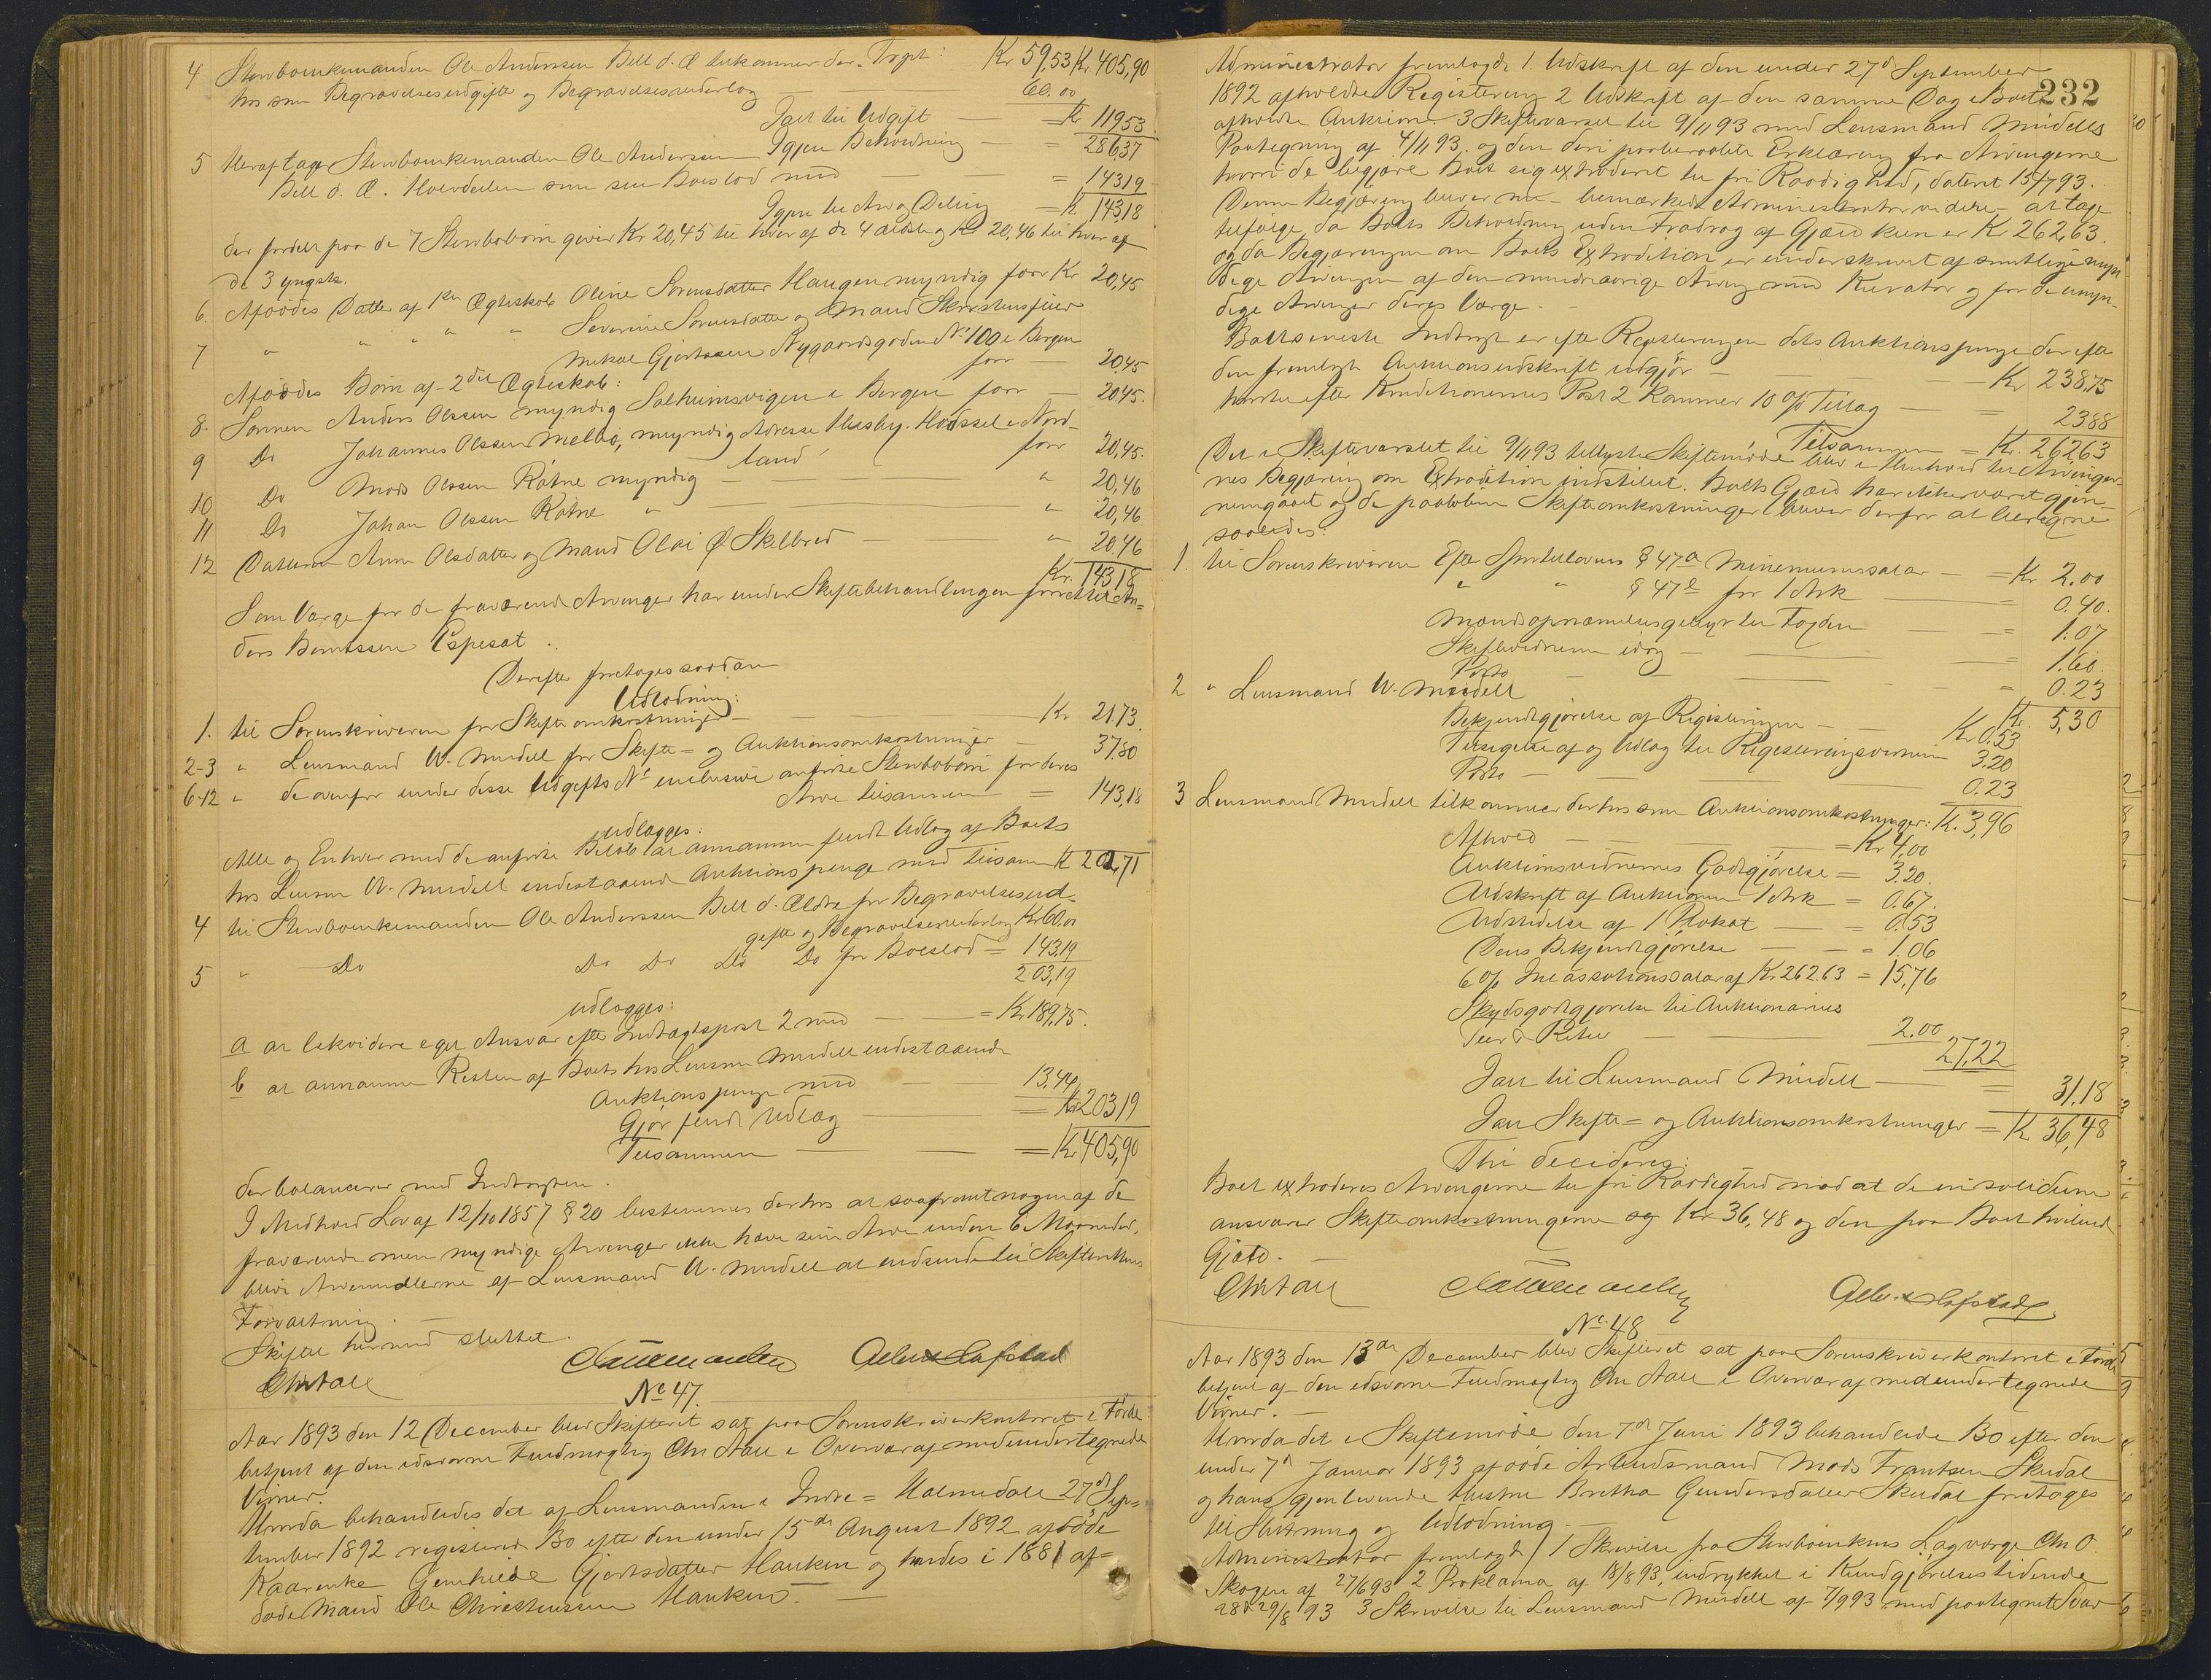 4 Stervboenkemanden Ole Anderssen Bell d. Æ tilkommer der. Trspt: Kr 59,53 Kr 405,90
hos som Begravelsesudgifter og Begravelsesvederlag — 60.00
Ialt til Udgift — = Kr 119,53
Igjen Beholdning — = 286,37
5 Heraf tager Stervboenkemanden Ole Anderssen
Bell d. Æ. Halvdelen som sin Boeslod med — = 143,19
Igjen til Arv og Deling = Kr 143,18
der fordelt paa de 7 Stervbobørn giver Kr 20,45 til hver af de 4 ældste og Kr 20,46 til hver af
de 3 yngste.
6. Afdødes Datter af 1ste Ægteskab Oline Sørensdatter Haugen myndig faar Kr 20,45
7 " " " " Severine Sørensdatter og Mand Skorstensfeier
Mikal Gjertssen Nygaardsgaden No 100 i Bergen
faar — 20,45
Afdødes Børn af 2det Ægteskab:
8. Sønnen Anders Olssen myndig Solheimsvigen i Bergen faar — 20,45.
9 Do Johannes Olssen Melbø, myndig Adresse Husby. Hadssel i Nord-
land faar 20,45.
10 Do Mads Olssen Råtne myndig — " 20,46
11 Do Johan Olssen Råtne " — " 20,46
12 Datteren Anne Olsdatter og Mand Olai O Skilbred — " 20,46
Kr. 143,18
Som Værge for de fraværende Arvinger har under Skiftebehandlingen fremstillet An-
ders Berntssen Espeset.
Derefter foretages saadan
Udlodning:
1. til Sorenskriveren for Skifteomkostninger — Kr 21,73.
2-3 " Lensmand W. Mindell for Skifte- og Auktionsomkostninger — 37,80
6-12 " de ovenfor under disse Udgifts No inclusive anførte Stervbobørn for deres
Arv tilsammen = 143,18
udlægges:
Alle og Enhver med de anførte Beløb at annamme fuldt Udlæg af Boets
hos Lensm W. Mindell indestaaende Auktionspenge med tilsam Kr 202,71
4 til Stervboenkemanden Ole Anderssen Bell d. Ældre for Begravelsesud-
gifter og Begravelsesvederlag Kr 60,00
5 " Do Do Do Do Do for Boeslod = 143,19
203,19
udlægges:
a at likvidere eget Ansvar efter Indtægtspost 2 med — = Kr 189,75.
b at annamme Resten af Boets hos Lensm Mindell indestaaende
Auktionspenge med — 13,44
Gjør fuldt Udlæg — = Kr 203,19
Tilsammen — = Kr 405,90
der balancerer med Indtægten.
I Medhold Lov af 12/10 1857 § 20 bestemmes derhos at saafremt nogen af de
fraværende men myndige Arvinger ikke hæve sin Arv inden 6 Maaneder,
blive Arvemidlerne af Lensmand W. Mindell at indsende til Skifterettens
Forvaltning. —
Skiftet hermed sluttet.
Chr Aall
No 47.
Aar 1893 den 12 December blev Skifteret sat paa Sorenskriverkontoret i Førde
betjent af den edsvorne Fuldmægtig Chr Aall i Overvær af medundertegnede
Vidner.
Hvorda behandledes det af Lensmanden i Indre-Holmedal 27de Sep-
tember 1892 registrerede Bo efter den under 15de August 1892 afdøde
Kaarenke Gunhilde Gjertsdatter Hauken og hendes i 1881 af-
døde Mand Ole Christenssen Hauken. —
232
Administrator fremlagde 1. Udskrift af den under 27de September
1892 afholdte Registrering 2 Udskrift af den samme Dag i Boet
afholdte Auktion. 3 Skiftevarsel til 9/11 93 med Lensmand Mindells
Paategning af 4/11 93. og den deri paaberaabte Erklæring fra Arvingerne
hvori de begjære Boet sig extraderet til fri Raadighed, dateret 15/7 93.
Denne Begjæring bliver nu – bemærkede Administrator videre – at tage
tilfølge, da Boets Beholdning uden Fradrag af Gjæld kun er Kr 262,63.
og da Begjæringen om Boets Extradition er underskrevet af samtlige myn-
dige Arvinger af den mindreaarige Arving med Kurator og for de umyn-
dige Arvinger deres Værge. —
Boets eneste Indtægt er efter Registreringen dets Auktionspenge der efter
den fremlagte Auktionsudskrift udgjør — Kr 238,75
hvortil efter Konditionernes Post 2 kommer 10 % Tillæg — = 23,88
Tilsammen = Kr. 262,63
Det i Skiftevarslet til 9/11 93 tillyste Skiftemøde blev i Henhold til Arvinger-
nes Begjæring om Extradition indstillet. Boets Gjæld har ikke været gjen-
nemgaaet og de paaløbne Skifteomkostninger bliver derfor at beregne
saaledes:
1. til Sorenskriveren Efter Sportellovens § 47 a Minimumssalær — = Kr 2,00
" " § 47 e for 1 Ark — = 0.40.
Mandsopnævnelsesgebyr til Fogden — = 1.07
Skiftevidnerne idag — 1.60.
Porto — = 0.23
Kr. 5,30
2 " Lensmand W. Mindell
Bekjendtgjørelse af Registeringen — Kr 0,53
Tilsigelse af og Udlæg til Registreringsvidnerne 3.20
Porto — 0.23
Kr. 3,96
3 Lensmand Mindell tilkommer derhos som Auktionsomkostninger:
Afhold — = Kr 4,00
Auktionsvidnernes Godtgjørelse = 3.20.
Udskrift af Auktionen 1 Ark = 0.67.
Udstedelse af 1 Plakat — = 0.53
Dens Bekjendtgjørelse — = 1.06
6 % Incassationssalær af Kr 262.63 = 15,76
Skydsgodtgjørelse til Auktionarius
Tur & Retur — 2.00
27,22
Ialt til Lensmand Mindell — = 31,18
Ialt Skifte- og Auktionsomkostninger = Kr 36,48
Thi decideres:
Boet extraderes Arvingerne til fri Raadighed mod at de in solidum
ansvarer Skifteomkostningerne og Kr 36,48 og den paa Boet hvilende
Gjæld. —
Chr Aall
No 48
Aar 1893 den 13de December blev Skifteret sat paa Sorenskriverkontoret i Førde
betjent af den edsvorne Fuldmægtig Chr Aall i Overvær af medundertegnede
Vidner. —
Hvorda det i Skiftemøde den 7de Juni 1893 behandlede Bo efter den
under 7de Januar 1893 afdøde Arbeidsmand Mads Frantsen Skudal
og hans gjenlevende Hustru Bretha Gundersdatter Skudal foretoges
til Slutning og Udlodning. —
Administrator fremlagde 1 Skrivelse fra Stervboenkens Lagværge Chr O.
Skogen af 27/6 93 2 Proklama af 18/8 93, indrykket i Kundgjørelsestidende
28 & 29/8 93 3 Skrivelse til Lensmand Mindell af 7/9 93 med paategnet Svar